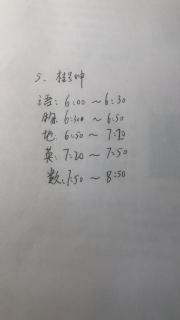 5、桂坤
语：6:00 ~ 6:30
6:30 ~ 6:50
地：6:50 ~ 7:20
英：7:20 ~ 7:50
数：7:50 ~ 8:50